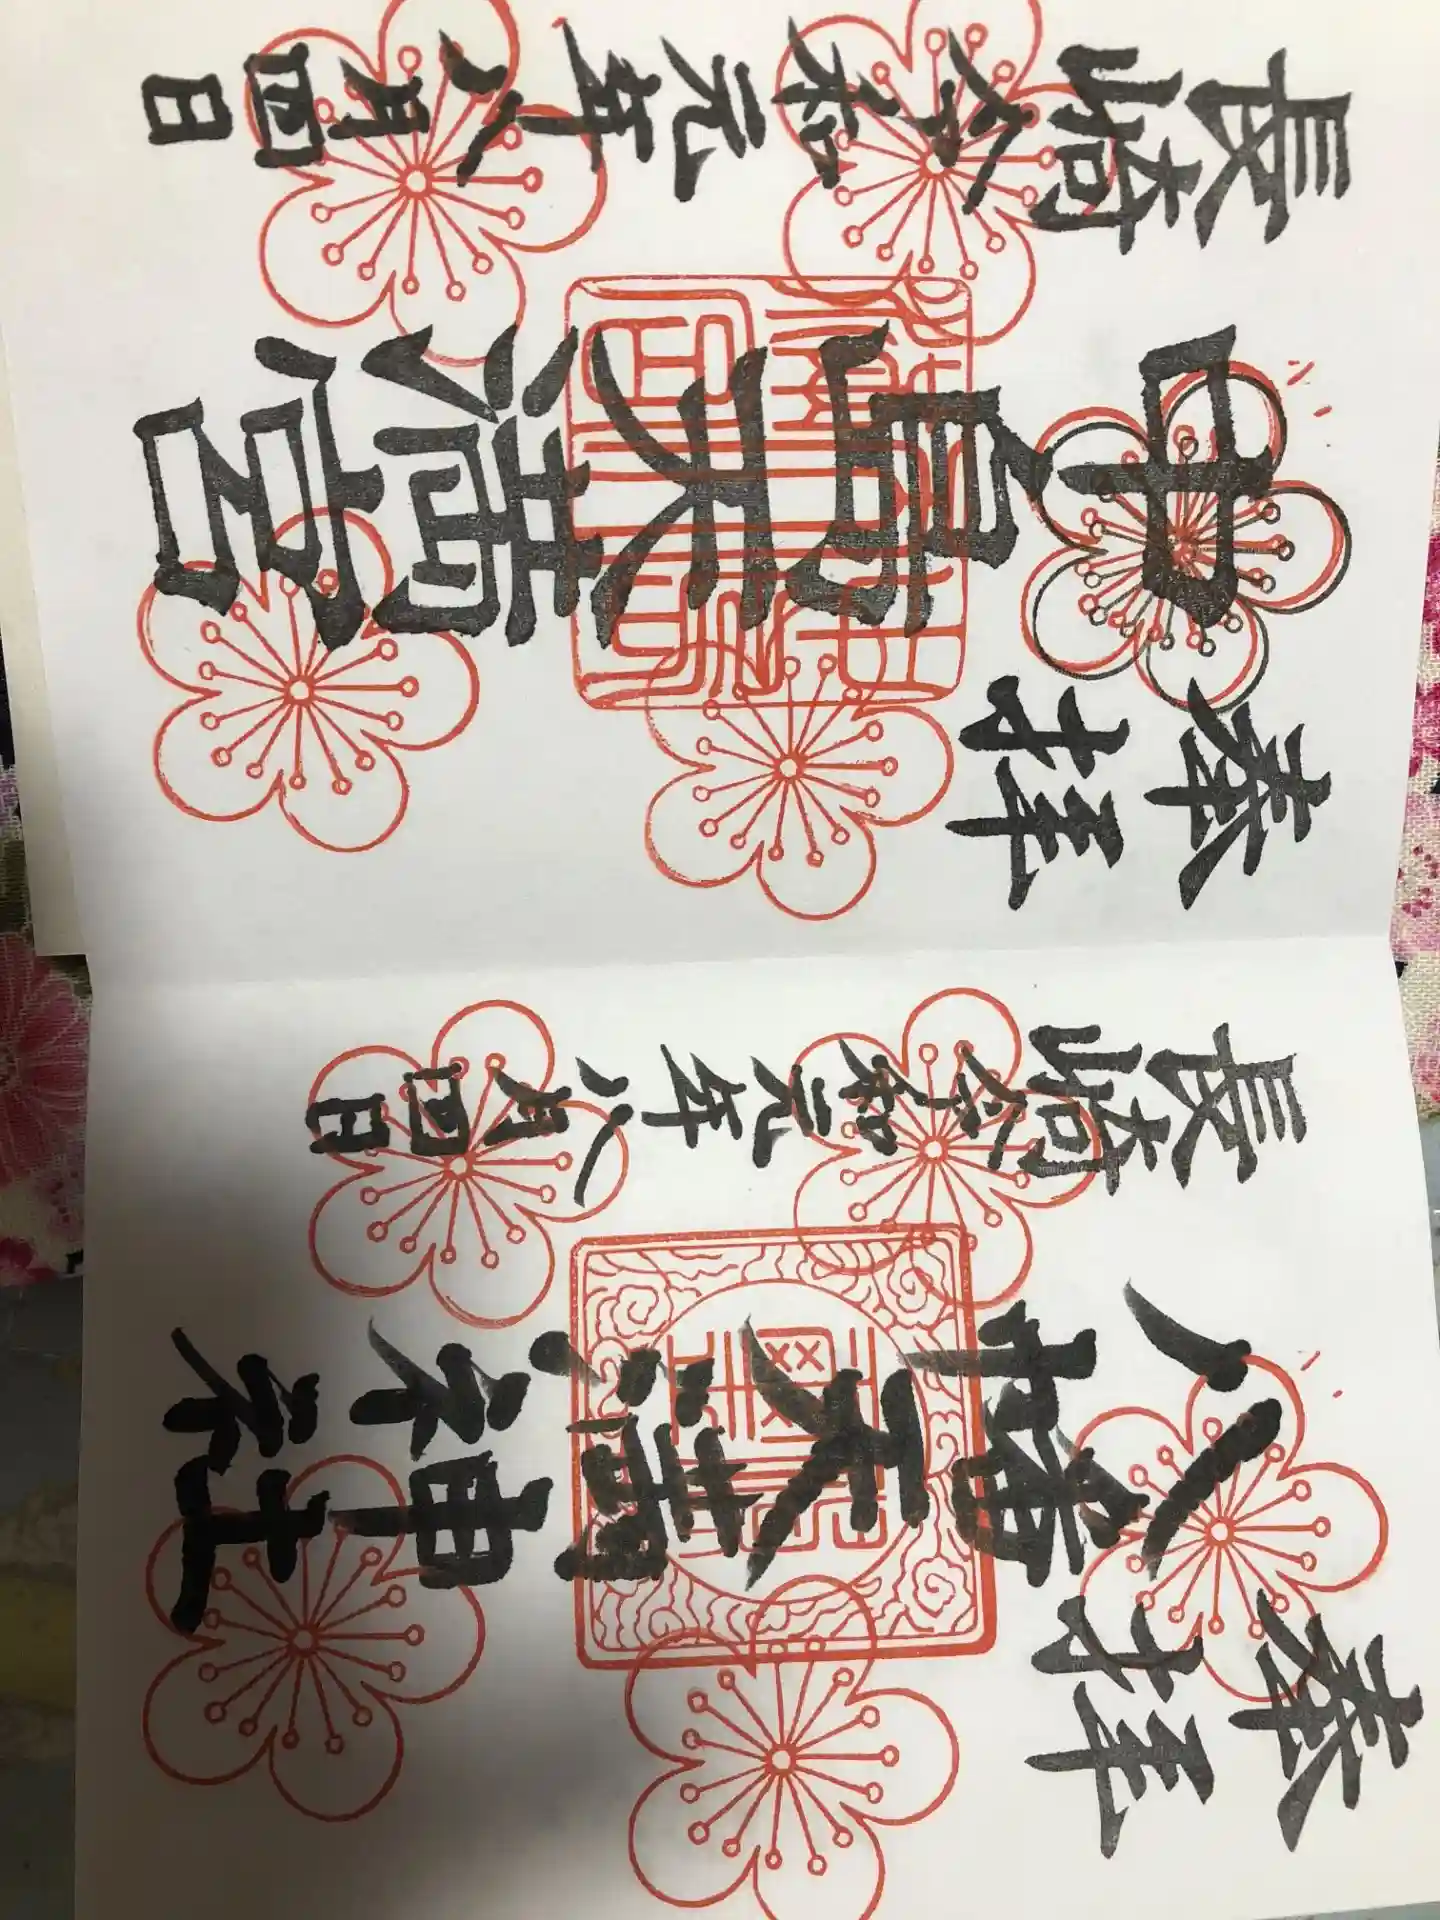 奉拝
八幡天満神社
長崎
令和元年八月四日
奉拝
中島天満宮
長崎
令和元年八月四日